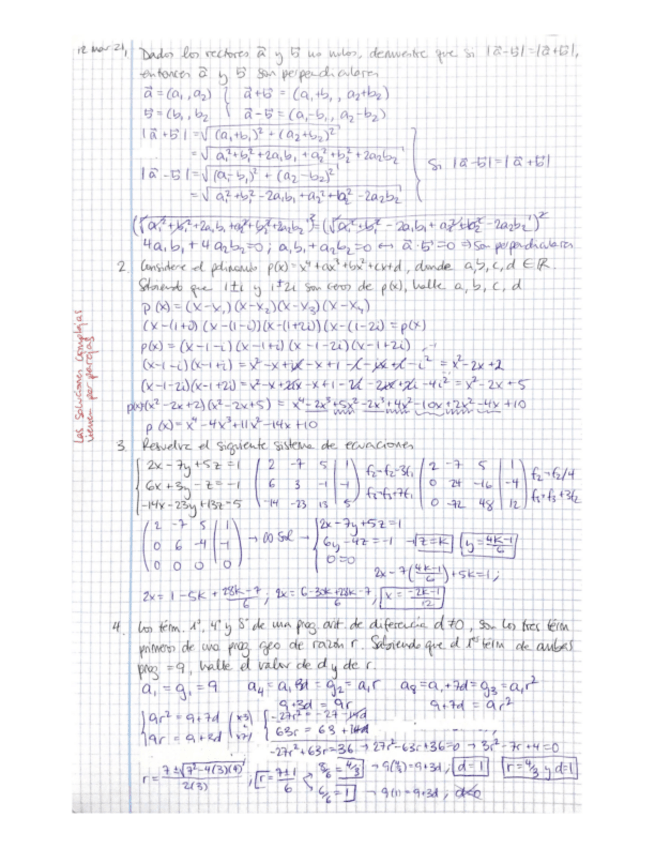 12 mar 21, Dados los vectores a⃗ y b⃗ no nulos, demuestre que si |a⃗-b⃗|=|a⃗+b⃗|,
entonces a⃗ y b⃗ son perpendiculares
a⃗=(a₁,a₂) { a⃗+b⃗ = (a₁+b₁, a₂+b₂)
b⃗=(b₁,b₂ { a⃗-b⃗ = (a₁-b₁, a₂-b₂)
|a⃗+b⃗|=√(a₁+b₁)²+(a₂+b₂)²
=√a₁²+b₁²+2a₁b₁+a₂²+b₂²+2a₂b₂
Si |a⃗-b⃗|=|a⃗+b⃗|
|a⃗-b⃗|=√(a₁-b₁)²+(a₂-b₂)²
=√a₁²+b₁²-2a₁b₁+a₂²+b₂²-2a₂b₂
(√a₁²+b₁²+2a₁b₁+a₂²+b₂²+2a₂b₂)²=(√a₁²+b₁²-2a₁b₁+a₂²+b₂²-2a₂b₂)²
4a₁b₁+4a₂b₂=0; a₁b₁+a₂b₂=0 ↔ a⃗·b⃗=0 ⇒ Son perpendiculares
2. Considere el polinomio p(x)=x⁴+ax³+bx²+cx+d, donde a,b,c,d ∈ ℝ.
Sabiendo que 1±i y 1±2i son ceros de p(x), halle a, b, c, d
p(x)=(x-x₁)(x-x₂)(x-x₃)(x-x₄)
(x-(1+i))(x-(1-i))(x-(1+2i))(x-(1-2i)=p(x)
p(x)=(x-1-i)(x-1+i)(x-1-2i)(x-1+2i)
(x-1-i)(x-1+i)=x²-x+ix-x+1-i-ix+i-i²=x²-2x+2
(x-1-2i)(x-1+2i)=x²-x+2ix-x+1-2i-2ix+2i-4i²=x²-2x+5
p(x)=(x²-2x+2)(x²-2x+5)=x⁴-2x³+5x²-2x³+4x²-10x+2x²-4x+10
p(x)=x⁴-4x³+11x²-14x+10
Las soluciones complejas
vienen por parejas
3. Resuelve el siguiente sistema de ecuaciones
{ 2x-7y+5z=1 ( 2 -7 5 | 1 ) f₂=f₂-3f₁ ( 2 -7 5 | 1 ) f₂=f₂/4
{ 6x+3y-z=-1 ( 6 3 -1 | -1 ) f₃=f₃+7f₁ ( 0 24 -16 | -4 ) f₃=f₃+3f₂
{ -14x-23y+13z=5 ( -14 -23 13 | 5 ) ( 0 -72 48 | 12 )
( 2 -7 5 | 1 ) { 2x-7y+5z=1
( 0 6 -4 | -1 ) → ∞ Sol → { 6y-4z=-1 → z=k y=4k-1/6
( 0 0 0 | 0 ) { 0=0
2x-7(4k-1/6)+5k=1;
2x=1-5k+28k-7/6; 2x=6-30k+28k-7/6, x=-2k-1/12
4. Los térm. 1º, 4º y 8º de una prog. arit. de diferencia d≠0, son los tres térm
primeros de una prog geo de razón r. Sabiendo que el 1º térm de ambas
prog =9, halle el valor de d y de r.
a₁=g₁=9 a₄=a₁3d=g₂=a₁r a₈=a₁+7d=g₃=a₁r²
9+3d=9r 9+7d=9r²
{ 9r²=9+7d (x-3) { -27r²=-27-14d
{ 9r=9+3d (x7) { 63r=63+14d
-27r²+63r=36 → 27r²-63r+36=0 → 3r²-7r+4=0
r=7±√7²-4(3)(4)/2(3), r=7±1/6 8/6=4/3 → 9(4/3)=9+3d, d=1 r=4/3 y d=1
6/6=1 → 9(1)=9+3d, d=0